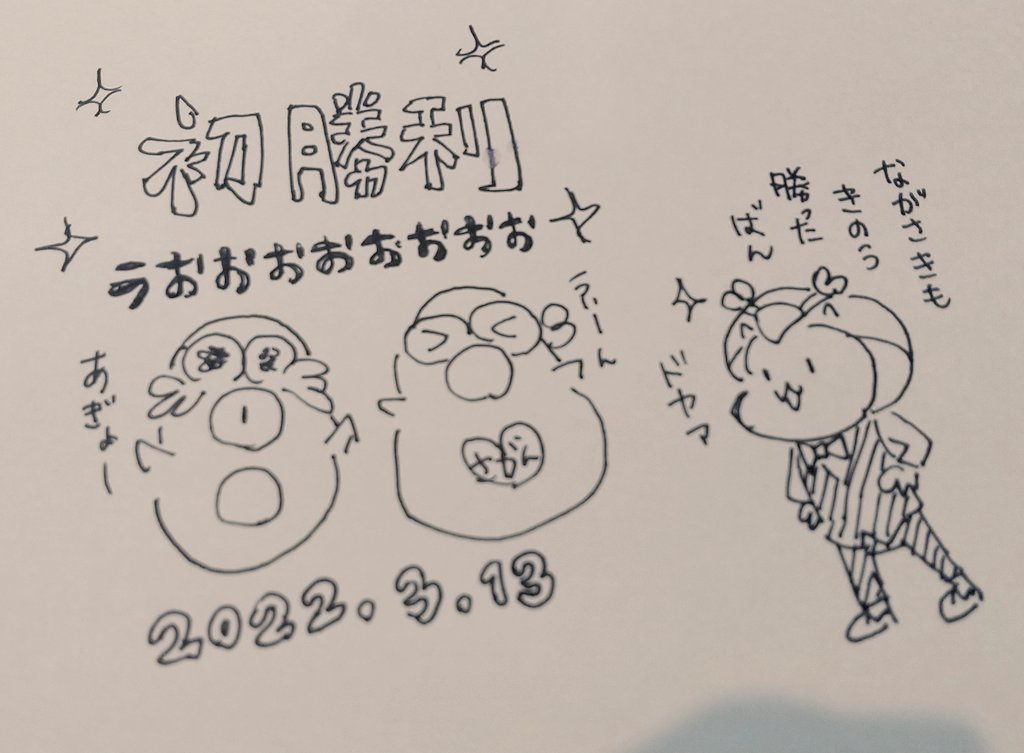 初勝利
うおおおおおおおお
あぎょー
さがん
2022.3.13
ながさきも
きのう
勝った
ばん
ドヤァ